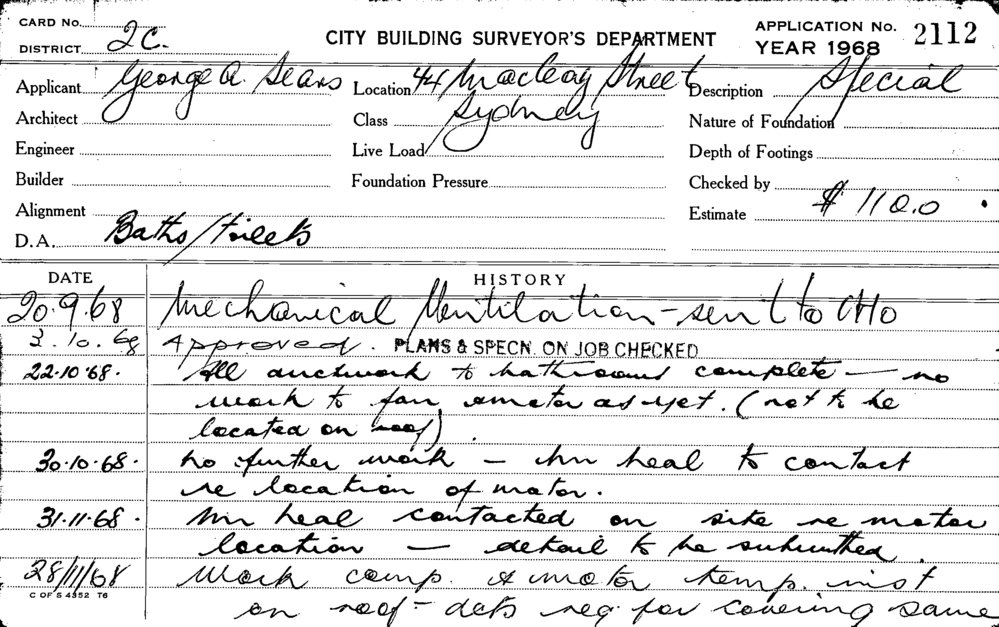 CARD No.
DISTRICT 2C.
CITY BUILDING SURVEYOR'S DEPARTMENT
APPLICATION No. 2112
YEAR 1968
Applicant George A. Sears Location 44 Macleay Street Description Special
Architect Class Sydney Nature of Foundation
Engineer Live Load Depth of Footings
Builder Foundation Pressure Checked by
Alignment Estimate $ 1100
D.A. Baths/toilets
DATE HISTORY
20.9.68 Mechanical Ventilation - sent to CHO
3.10.68 Approved. PLANS & SPECN. ON JOB CHECKED
22.10.68. All ductwork to bathrooms complete — no
work to fan & motor as yet. (not to be
located on roof)
30.10.68. No further work — Mr Heal to contact
re location of motor.
31.11.68. Mr Heal contacted on site re motor
location — detail to be submitted.
28/11/68 Work comp. & motor temp. inst
C OF S 4352 T6
on roof - dets req. for covering same